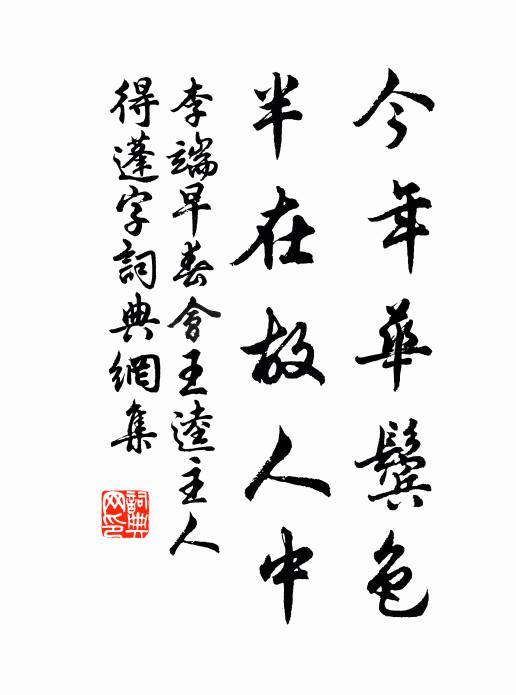 今年華鬢色
半在故人中
李端早春會王逵主人
得蓬字詞典網集
詞典
网印